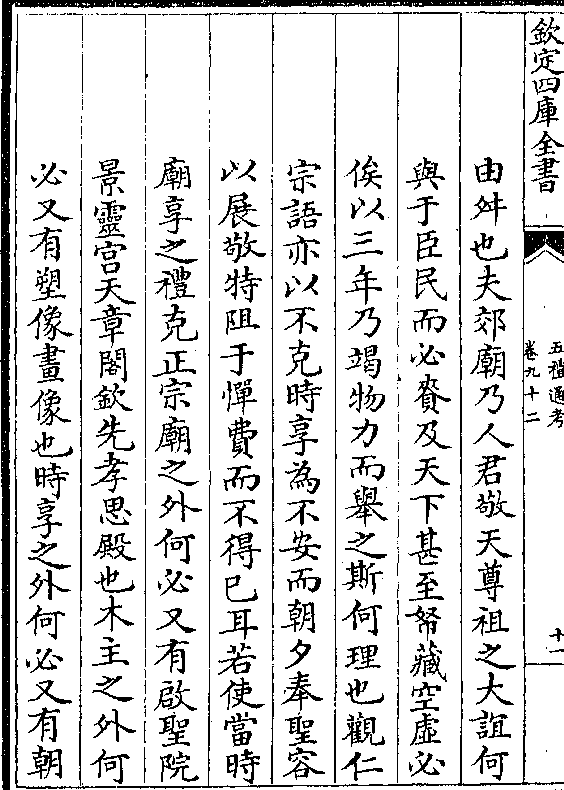 欽定四庫全書
五禮通考
卷九十二
十一
由舛也夫郊廟乃人君敬天尊祖之大誼何
與于臣民而必賚及天下甚至帑藏空虛必
俟以三年乃竭物力而舉之斯何理也觀仁
宗語亦以不克時享為不安而朝夕奉聖容
以展敬特阻于憚費而不得已耳若使當時
廟享之禮克正宗廟之外何必又有啟聖院
景靈宫天章閣欽先孝思殿也木主之外何
必又有塑像畫像也時享之外何必又有朝